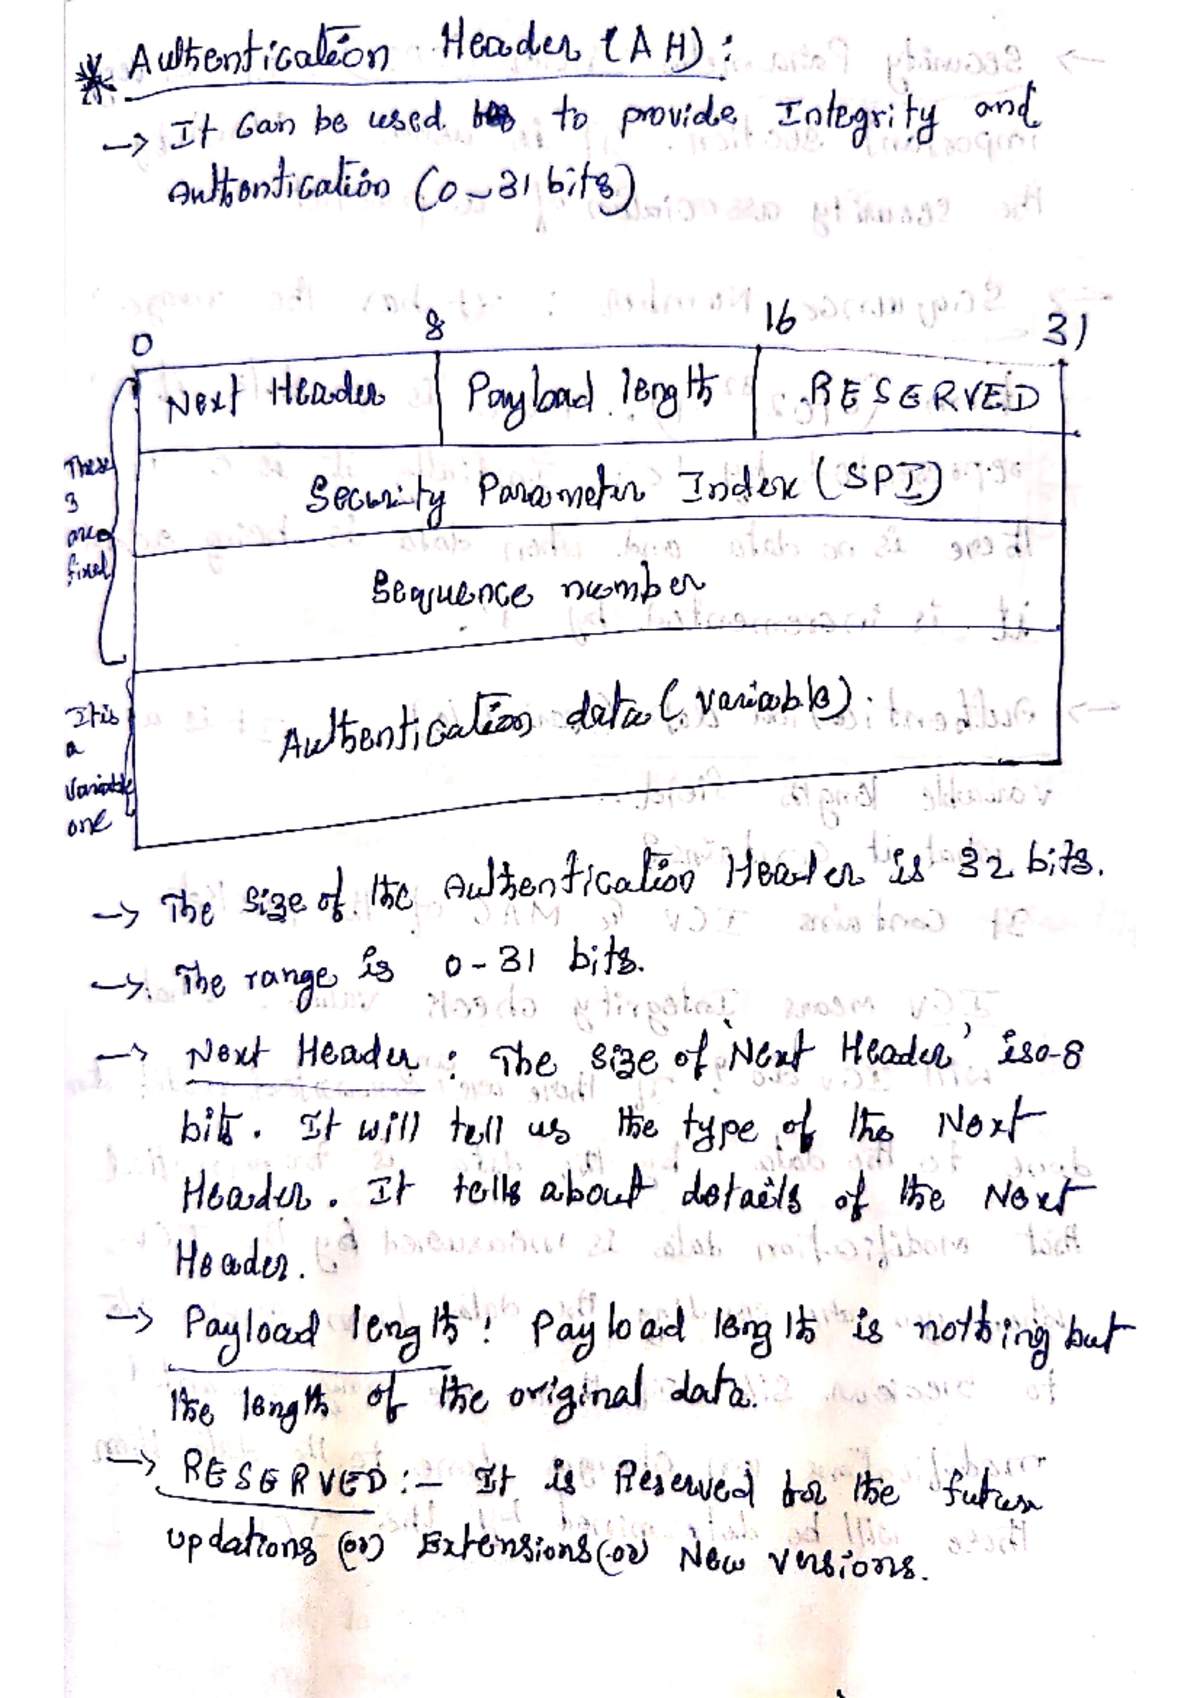 * Authentication Header (AH) :
→ It Can be used to provide Integrity and
Authentication (0-31 bits)
0 8 16 31
Next Header Payload length RESERVED
These
3
are
fixed
Security Parameter Index (SPI)
Sequence number
It is
a
Variable
one
Authentication data (variable).
→ The Size of the Authentication Header is 32 bits.
→ The range is 0-31 bits.
→ Next Header : The size of 'Next Header' is 0-8
bits. It will tell us the type of the Next
Header. It tells about details of the Next
Header.
→ Payload length : Payload length is nothing but
the length of the original data.
→ RESERVED :- It is Reserved for the future
updations (or) Extensions (or) New versions.